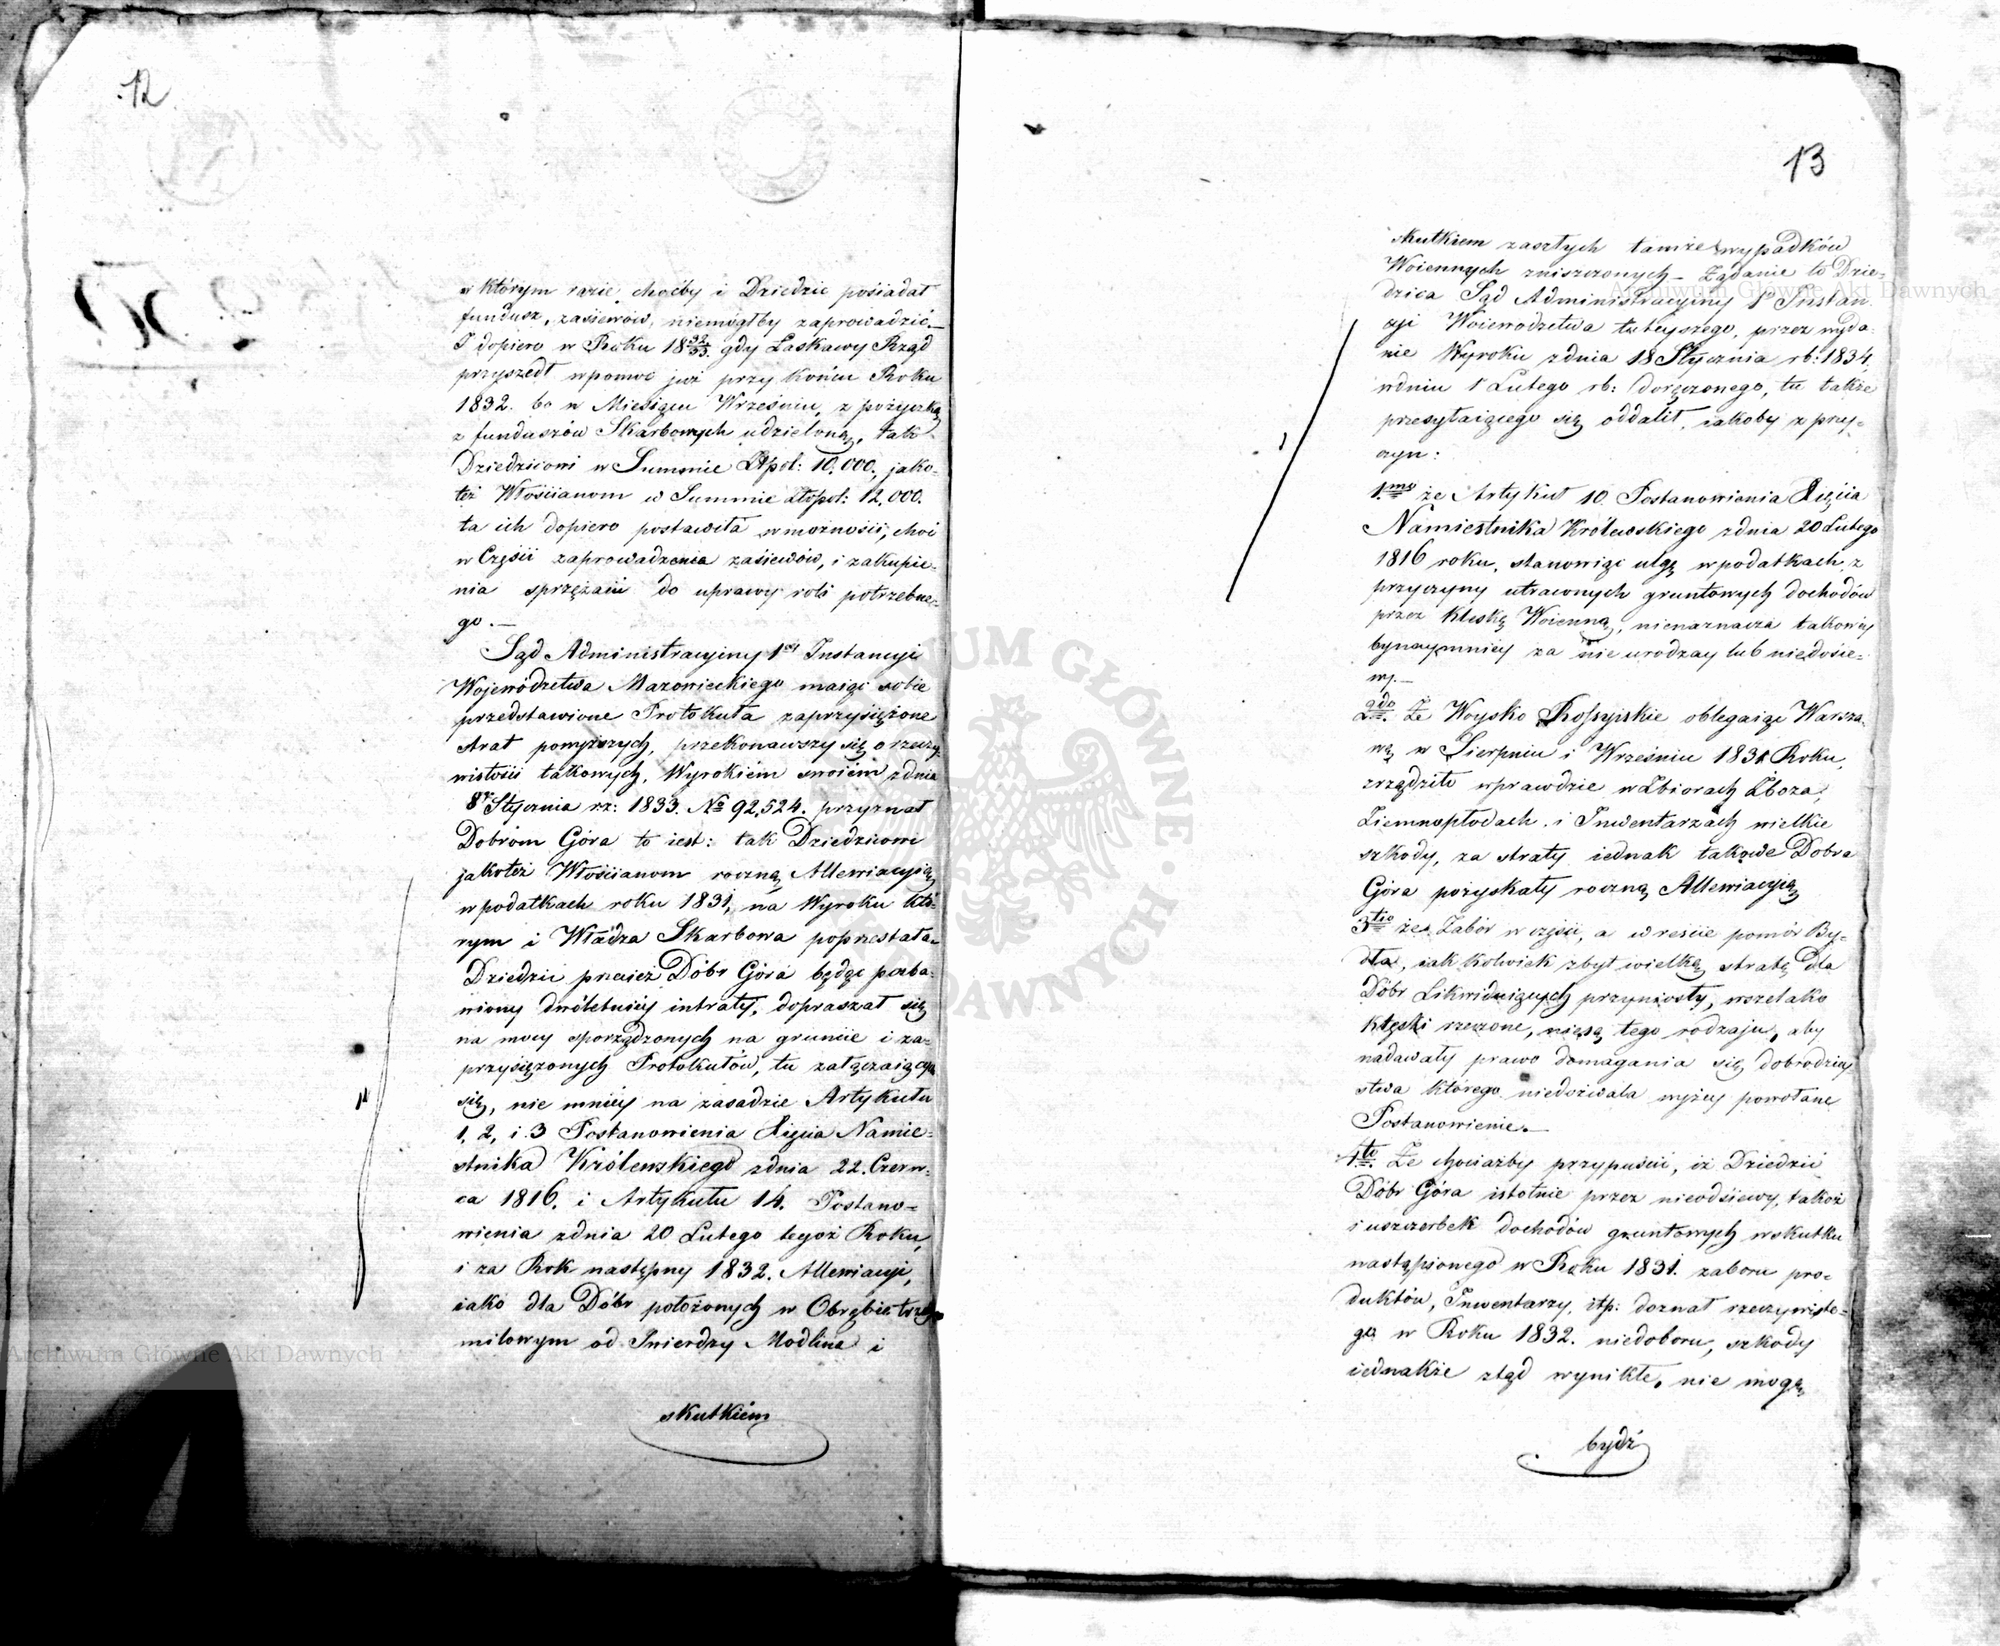 12
w którym razie, choćby i Dziedzic posiadał
fundusz, zasiewów, niemógłby zaprowadzić.—
I dopiero w Roku 18 32/33. gdy Łaskawy Rząd
przyszedł w pomoc już przy końcu Roku
1832. bo w Miesiącu Wrześniu, z pożyczką
z funduszów Skarbowych udzieloną, tak
Dziedzicowi w Summie Złpol: 10,000, jako-
też Włościanom w Summie Złopol: 12,000.
ta ich dopiero postawiła w możności, choć
w Części zaprowadzenia zasiewów, i zakupie-
nia sprzężaiu do uprawy roli potrzebne-
go.—
Sąd Administracyiny 1éy Instancyi
Województwa Mazowieckiego maiąc sobie
przedstawione Protokuła zaprzysiężone
strat powyższych, przekonawszy się o rzeczy-
wistości takowych, Wyrokiém swoiém z dnia
8º Stycznia rz: 1833. Nº 92,524. przyznał
Dobróm Góra to iest: tak Dziedzicowi
jakoteż Włościanom roczną Allewiacyią
w podatkach roku 1831, na Wyroku któ-
rym i Władza Skarbowa poprzestała.
Dziedzic przecież Dóbr Góra będąc pozba-
wiony dwóletniéy intraty, dopraszał się
na mocy sporządzonych na gruncie i za-
przysiężonych Protokułów, tu załączaiących
się, nie mniéy na zasadzie Artykułu
1, 2, i 3 Postanowienia Xięcia Namie-
stnika Królewskiego z dnia 22. Czerw-
ca 1816. i Artykułu 14. Postano-
wienia z dnia 20 Lutego tegoż Roku,
i za Rok następny 1832. Allewiacyi,
iako dla Dóbr położonych w Obrębie trzech
milowym od Twierdzy Modlina i
skutkiém
13
skutkiem zaszłych tamże wypadków
Woiennych zniszczonych— Żądanie to Dzie-
dzica Sąd Administracyiny 1º Instan-
cyi Woiewodztwa tuteyszego, przez wyda-
nie Wyroku z dnia 18 Stycznia rb: 1834.
w dniu 1 Lutego rb: doręczonego, tu także
przesyłaiącego się oddalił, iakoby z przy-
czyn:
1.mo że Artykuł 10. Postanowienia Xięcia
Namiestnika Królewskiego z dnia 20 Lutego
1816 roku, stanowiąc ulgę w podatkach, z
przyczyny utraconych gruntowych dochodów
przez klęskę Woienną, nienaznacza takowéy
bynaymniéy za nieurodzay lub niedosie-
wy.—
2do Że Woysko Rossyiskie oblegaiąc Warsza-
wę w Sierpniu i Wrześniu 1831 Roku,
zrządziło wprawdzie w Zbiorach Zboża,
Ziemnopłodach, i Inwentarzach wielkie
szkody, za straty iednak takowe Dobra
Góra pozyskały roczną Allewiacyią
3tio że Zabór w części, a wreście pomór By-
dła, iak kolwiek zbyt wielką stratę dla
Dóbr Likwiduiących przyniosły, wszelako
klęski rzeczone, niesą tego rodzaju, aby
nadawały prawo domagania się dobrodziey-
stwa którego niedozwala wyżey powołane
Postanowienie.—
4to. Że chociażby przypuścić, iż Dziedzic
Dóbr Góra istotnie przez nieodsiewy, takoż
i uszczerbek dochodów gruntowych w skutku
nastąpionego w Roku 1831. zaboru pro-
duktów, Inwentarzy, itp: doznał rzeczywiste-
go w Roku 1832. niedoboru, szkody
iednakże ztąd wynikłe, nie mogą
bydź
Archiwum Główne Akt Dawnych
Archiwum Główne Akt Dawnych